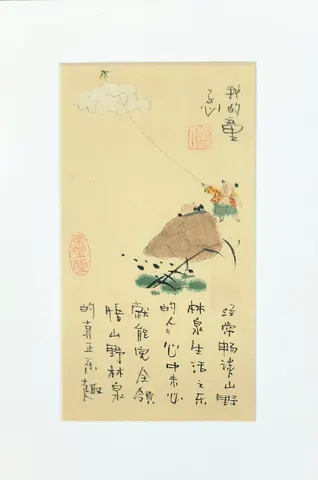 我的童
心
经常畅谈山野
林泉生活之乐
的人心中未必
就能完全领
悟山野林泉
的真正乐趣